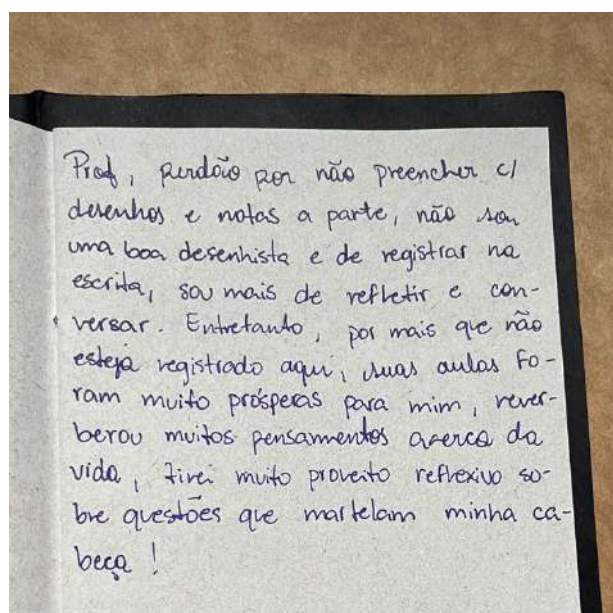 Prof, perdão por não preencher c/
desenhos e notas a parte, não sou
uma boa desenhista e de registrar na
escrita, sou mais de refletir e con-
versar. Entretanto, por mais que não
esteja registrado aqui, suas aulas fo-
ram muito prósperas para mim, rever-
berou muitos pensamentos acerca da
vida, tirei muito proveito reflexivo so-
bre questões que martelam minha ca-
beça!